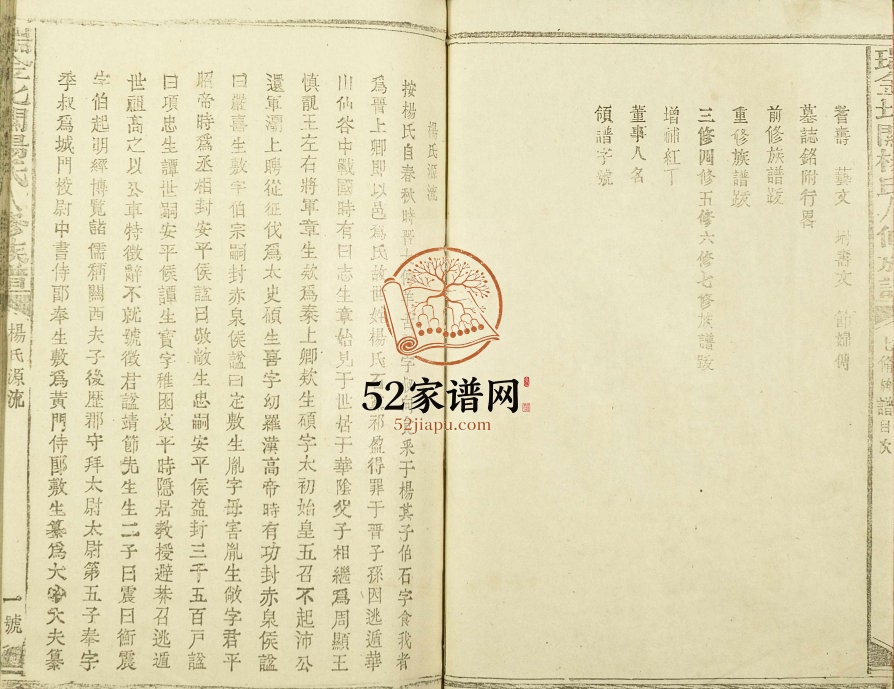 耆壽 藝文 塘書文 節婦傳
墓誌銘附行畧
前修族譜跋
重修族譜跋
三修四修五修六修七修族譜跋
增補紅丁
董事人名
領譜字號
譜目次
楊氏源流
按楊氏自春秋時晉 字 采于楊其子伯石字食我者
爲晉上卿即以邑爲氏故世姓楊氏 祁盈得罪于晉子孫因逃遁華
山仙谷中戰國時有曰志生章始見于世居于華陰父子相繼爲周顯王
愼靚王左右將軍章生欵爲秦上卿欵生碩字太初始皇五召不起沛公
還軍灞上聘從征伐爲太史碩生喜字幼羅漢高帝時有功封赤泉侯諡
曰嚴喜生敷字伯宗嗣封赤泉侯諡曰定敷生胤字毋害胤生敞字君平
昭帝時爲丞相封安平侯諡曰敬敞生忠嗣安平侯益封三千五百戸諡
曰項忠生譚世嗣安平侯譚生寶字稚囦哀平時隱居教授避莽召逃遁
世祖高之以公車特徵辭不就號徵君諡靖節先生生二子曰震曰衡震
字伯起明經博覽諸儒稱關西夫子後歷郡守拜太尉太尉第五子奉字
季叔爲城門校尉中書侍郎奉生敷爲黃門侍郎敷生纂爲大 大夫纂
楊氏源流
一號
52家谱网
52jiapu.com